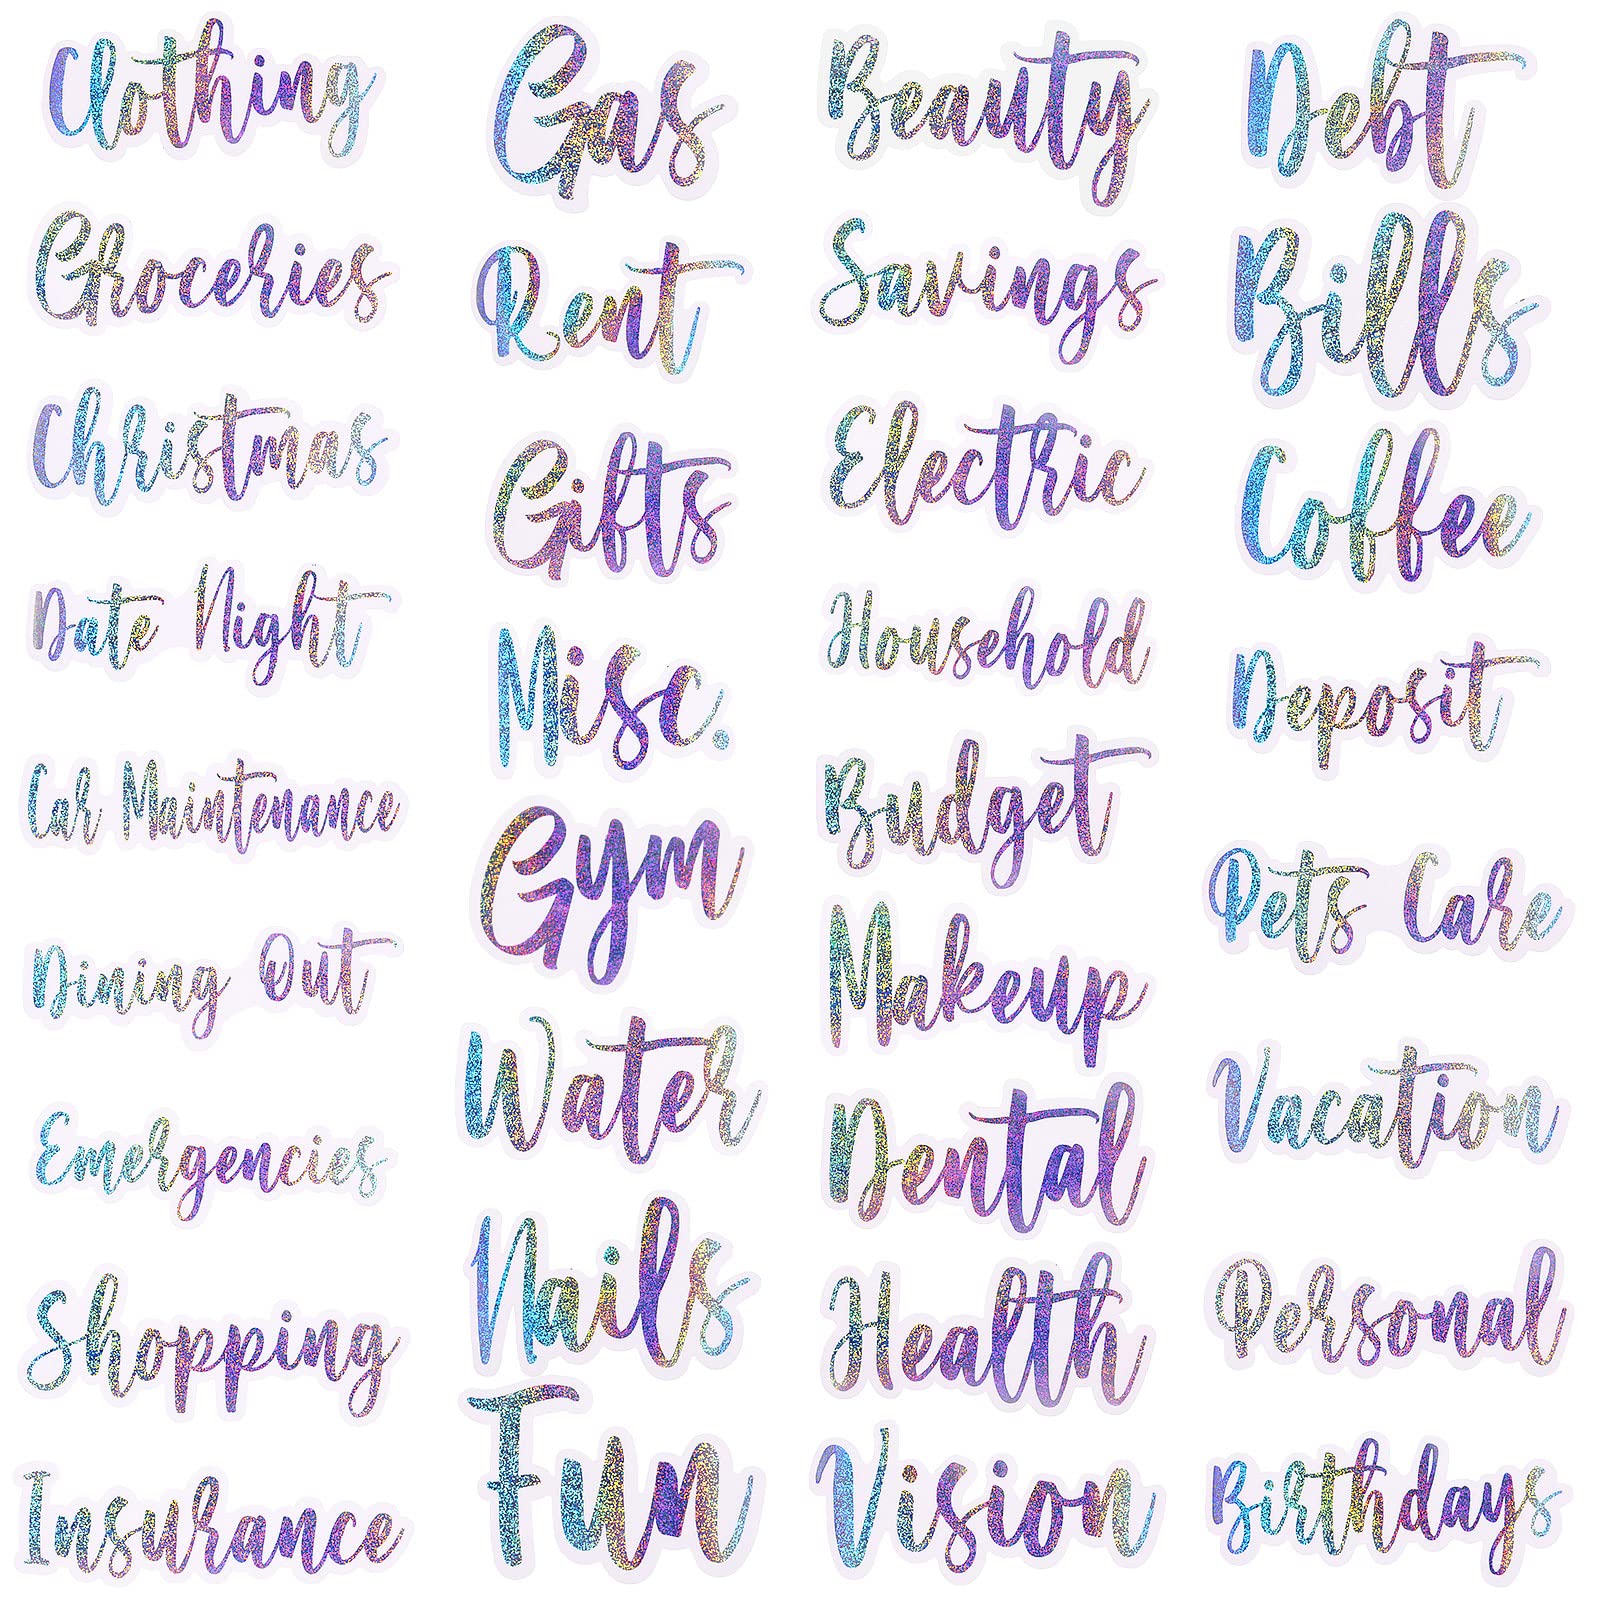 Clothing
Gas
Beauty
Debt
Groceries
Rent
Savings
Bills
Christmas
Gifts
Electric
Coffee
Date Night
Misc.
Household
Deposit
Car Maintenance
Gym
Budget
Pets Care
Dining Out
Water
Makeup
Vacation
Emergencies
Nails
Dental
Personal
Shopping
Fun
Health
Birthdays
Insurance
Vision